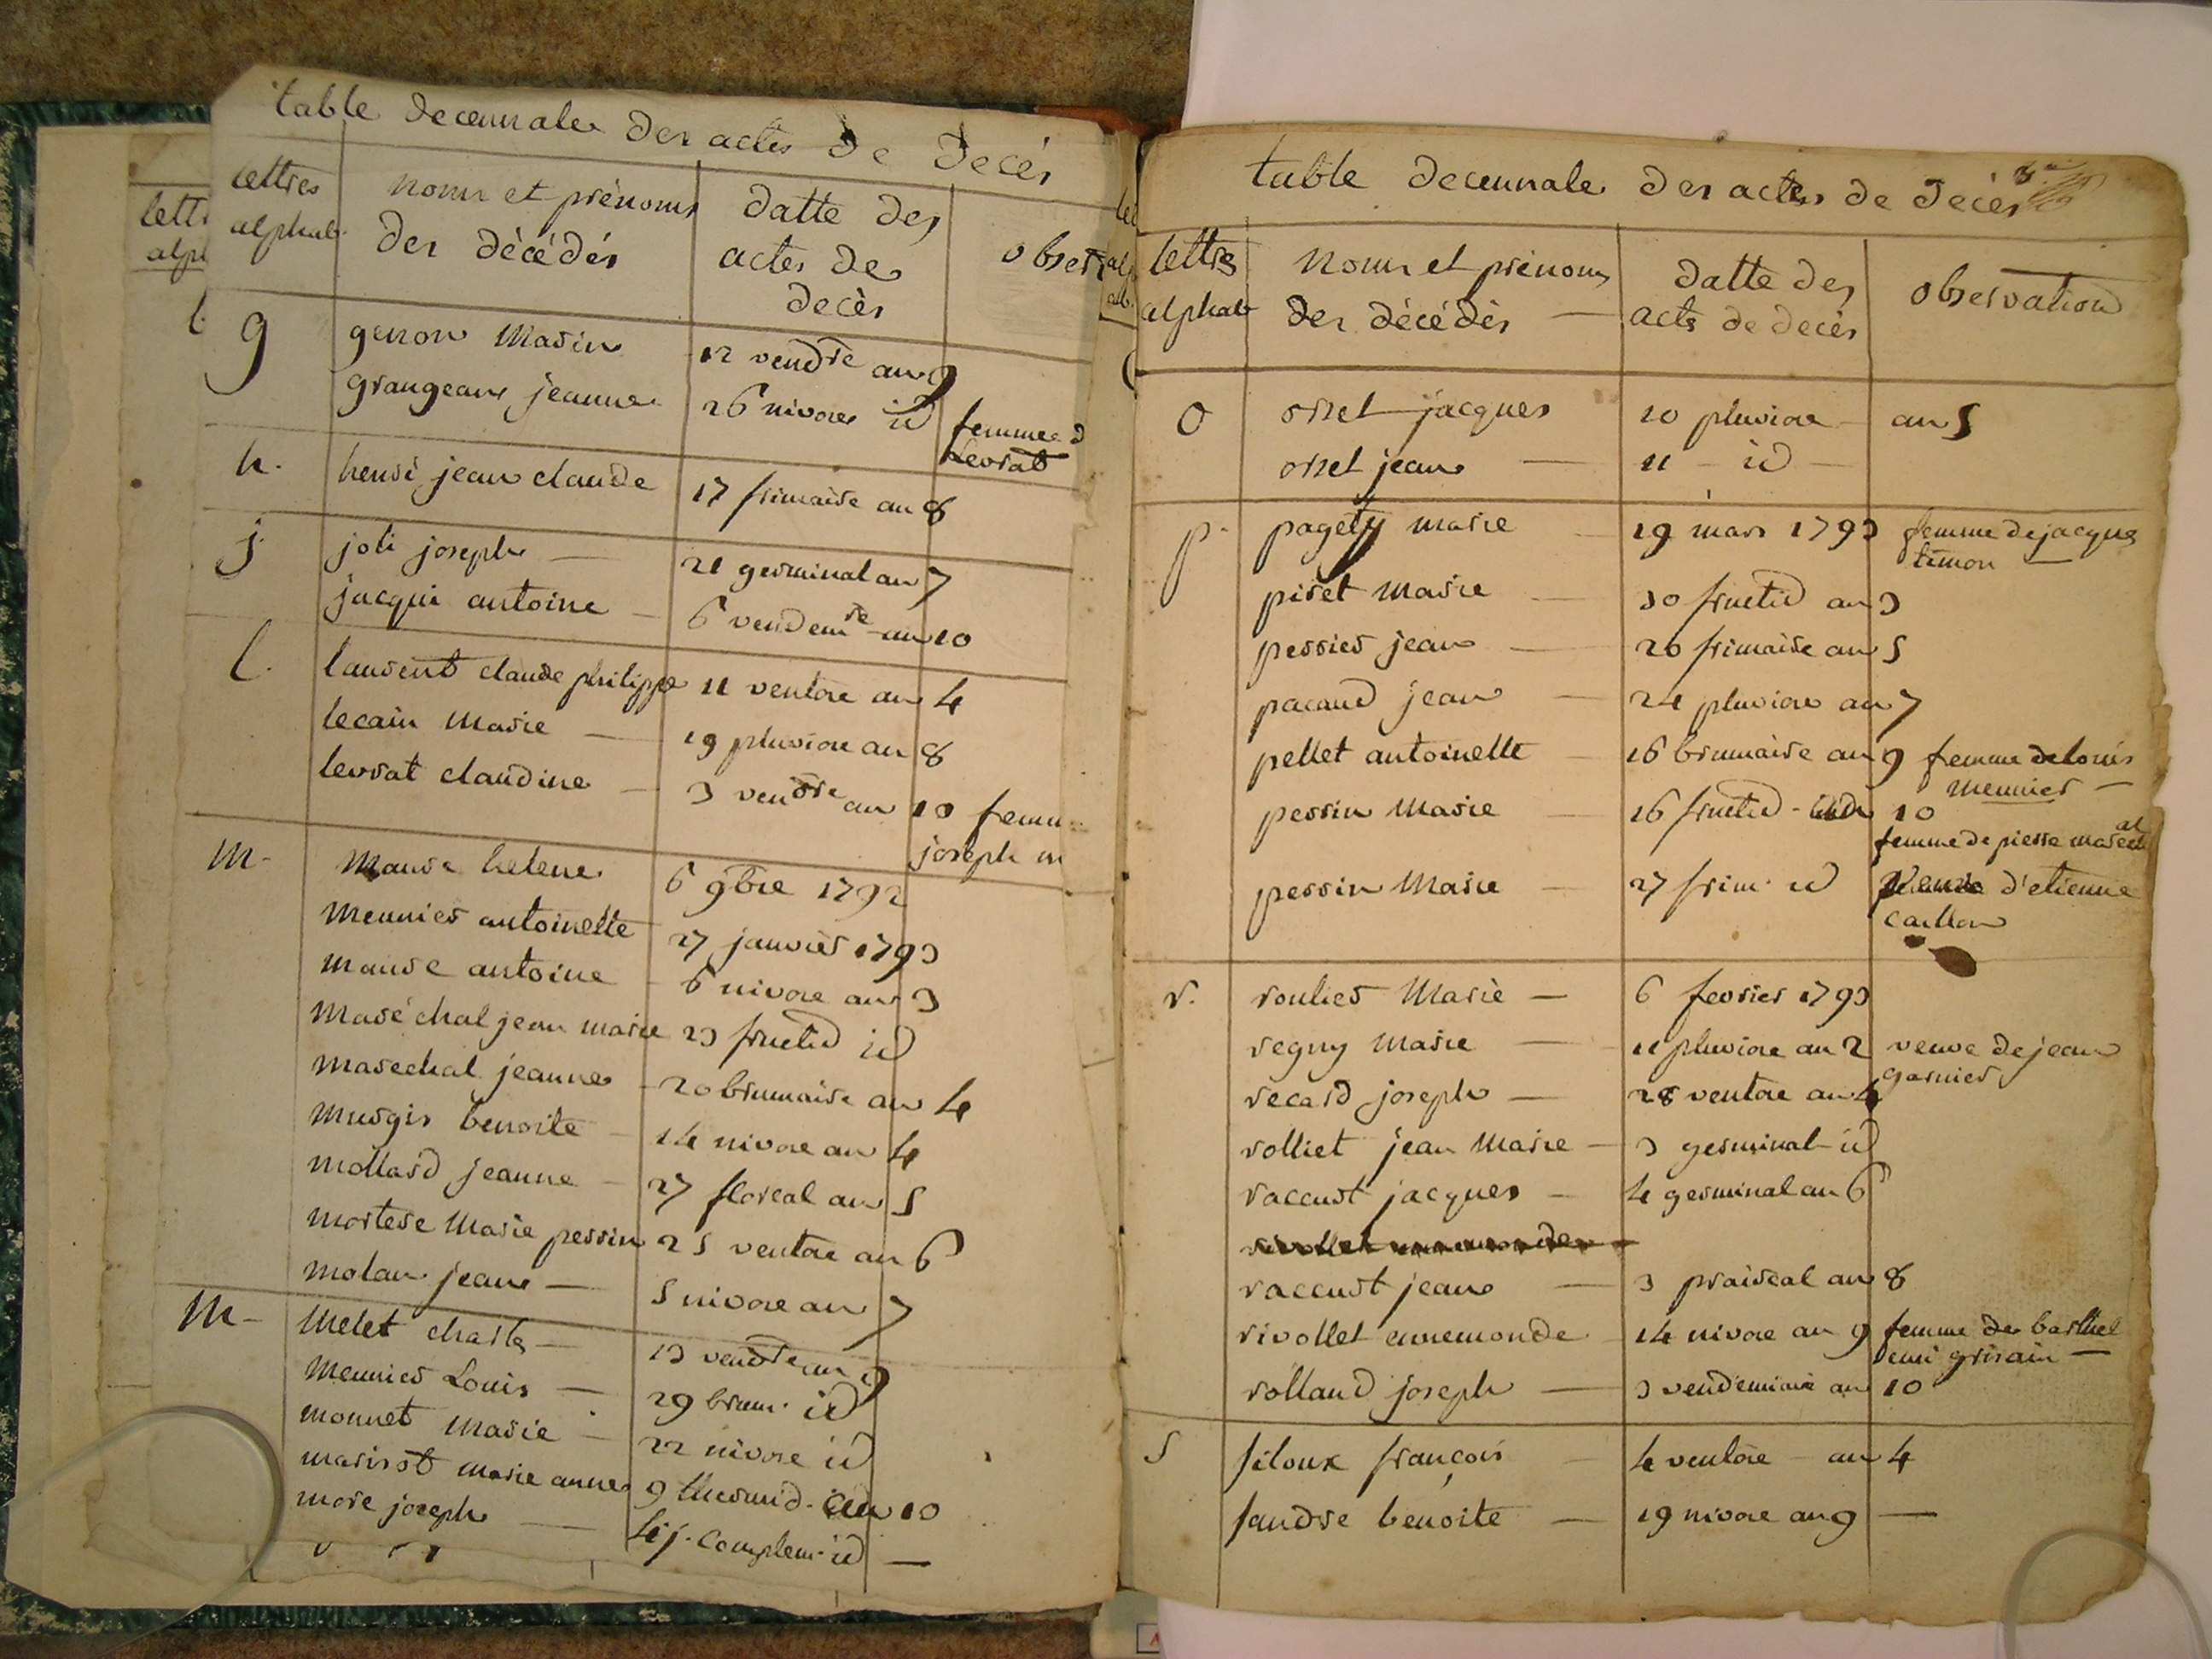 table decennale des actes de decès
lettres alphab. noms et prénoms des décédés datte des actes de decès obser
g genon Marin 12 vendre an 9
grangean jeanne 26 nivose id femme d
Levrat
h. henri jean claude 17 frimaire an 8
j joli joseph — 21 germinal an 7
jacqui antoine — 6 vendemre an 10
l. laurent claude philippe 11 ventose an 4
lecain Marie — 19 pluviose an 8
levrat claudine — 3 vendre an 10 femm
joseph m
m- Maure helene 6 9bre 1792
Meunier antoinette 27 janvier 1793
maure antoine 6 nivose an 3
maréchal jean marie 23 fructid id
marechal jeanne 20 brumaire an 4
murgis benoite 14 nivose an 4
mollard jeanne 27 floreal an 5
mortese Marie perrin 25 ventose an 6
molan jean — 5 nivose an 7
m- Melet charles — 13 vendre an 9
Meunier Louis — 29 brum. id
monnet Marie — 22 nivose id
marie anne 9 thermid. an 10
more joseph — 4 j. complem. id —
table decennale des actes de décès
lettres alphab noms et prénoms des décédés — datte des actes de decès observation
O orset jacques 10 pluviose an 5
orset jean — 11 - id -
p. pagety marie 19 mars 1793 femme de jacques
timon —
piret Marie 30 fructid an 3
perrier jean 26 frimaire an 5
pacaud jean 24 pluviose an 7
pellet antoinette 16 brumaire an 9 femme de louis
meunier —
perrin Marie 16 fructid - 10
femme de pierre marechal
perrin Marie 27 frim. id veuve d'etienne
caillon
r. roulier Marie — 6 fevrier 1793
regny Marie — 11 pluviose an 2 veuve de jean
garnier
recard joseph — 28 ventose an 4
rolliet jean Marie — 3 germinal id
raccurt jacques — 4 germinal an 6
rivollet ennemonde —
raccurt jean — 3 prairéal an 8
rivollet ennemonde 14 nivose an 9 femme de barthel
emi grisain —
rolland joseph — 3 vendemiaire an 10
S siloux françois 4 ventose an 4
sandre benoite — 19 nivose an 9 —